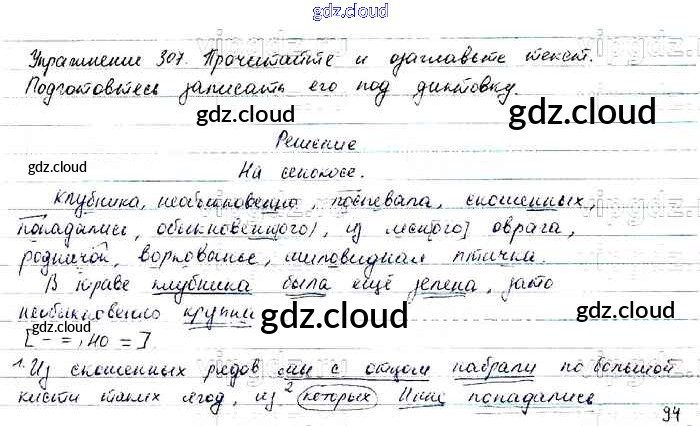 gdz.cloud
Упражнение 307. Прочитайте и озаглавьте текст.
Подготовьтесь записать его под диктовку.
gdz.cloud gdz.cloud
Решение
gdz.cloud
На сенокосе.
Клубника, необыкновенно, поспевала, скошенных,
попадались, обыкновенного), из лесного] оврага,
родничок, воркованье, миловидная птичка.
В траве клубника была ещё зелена, зато
необыкновенно крупна
gdz.cloud gdz.cloud
[- =, но =].
1. Из скошенных рядов мы с отцом набрали по большой
кисти таких ягод, из ² которых иные попадались
94